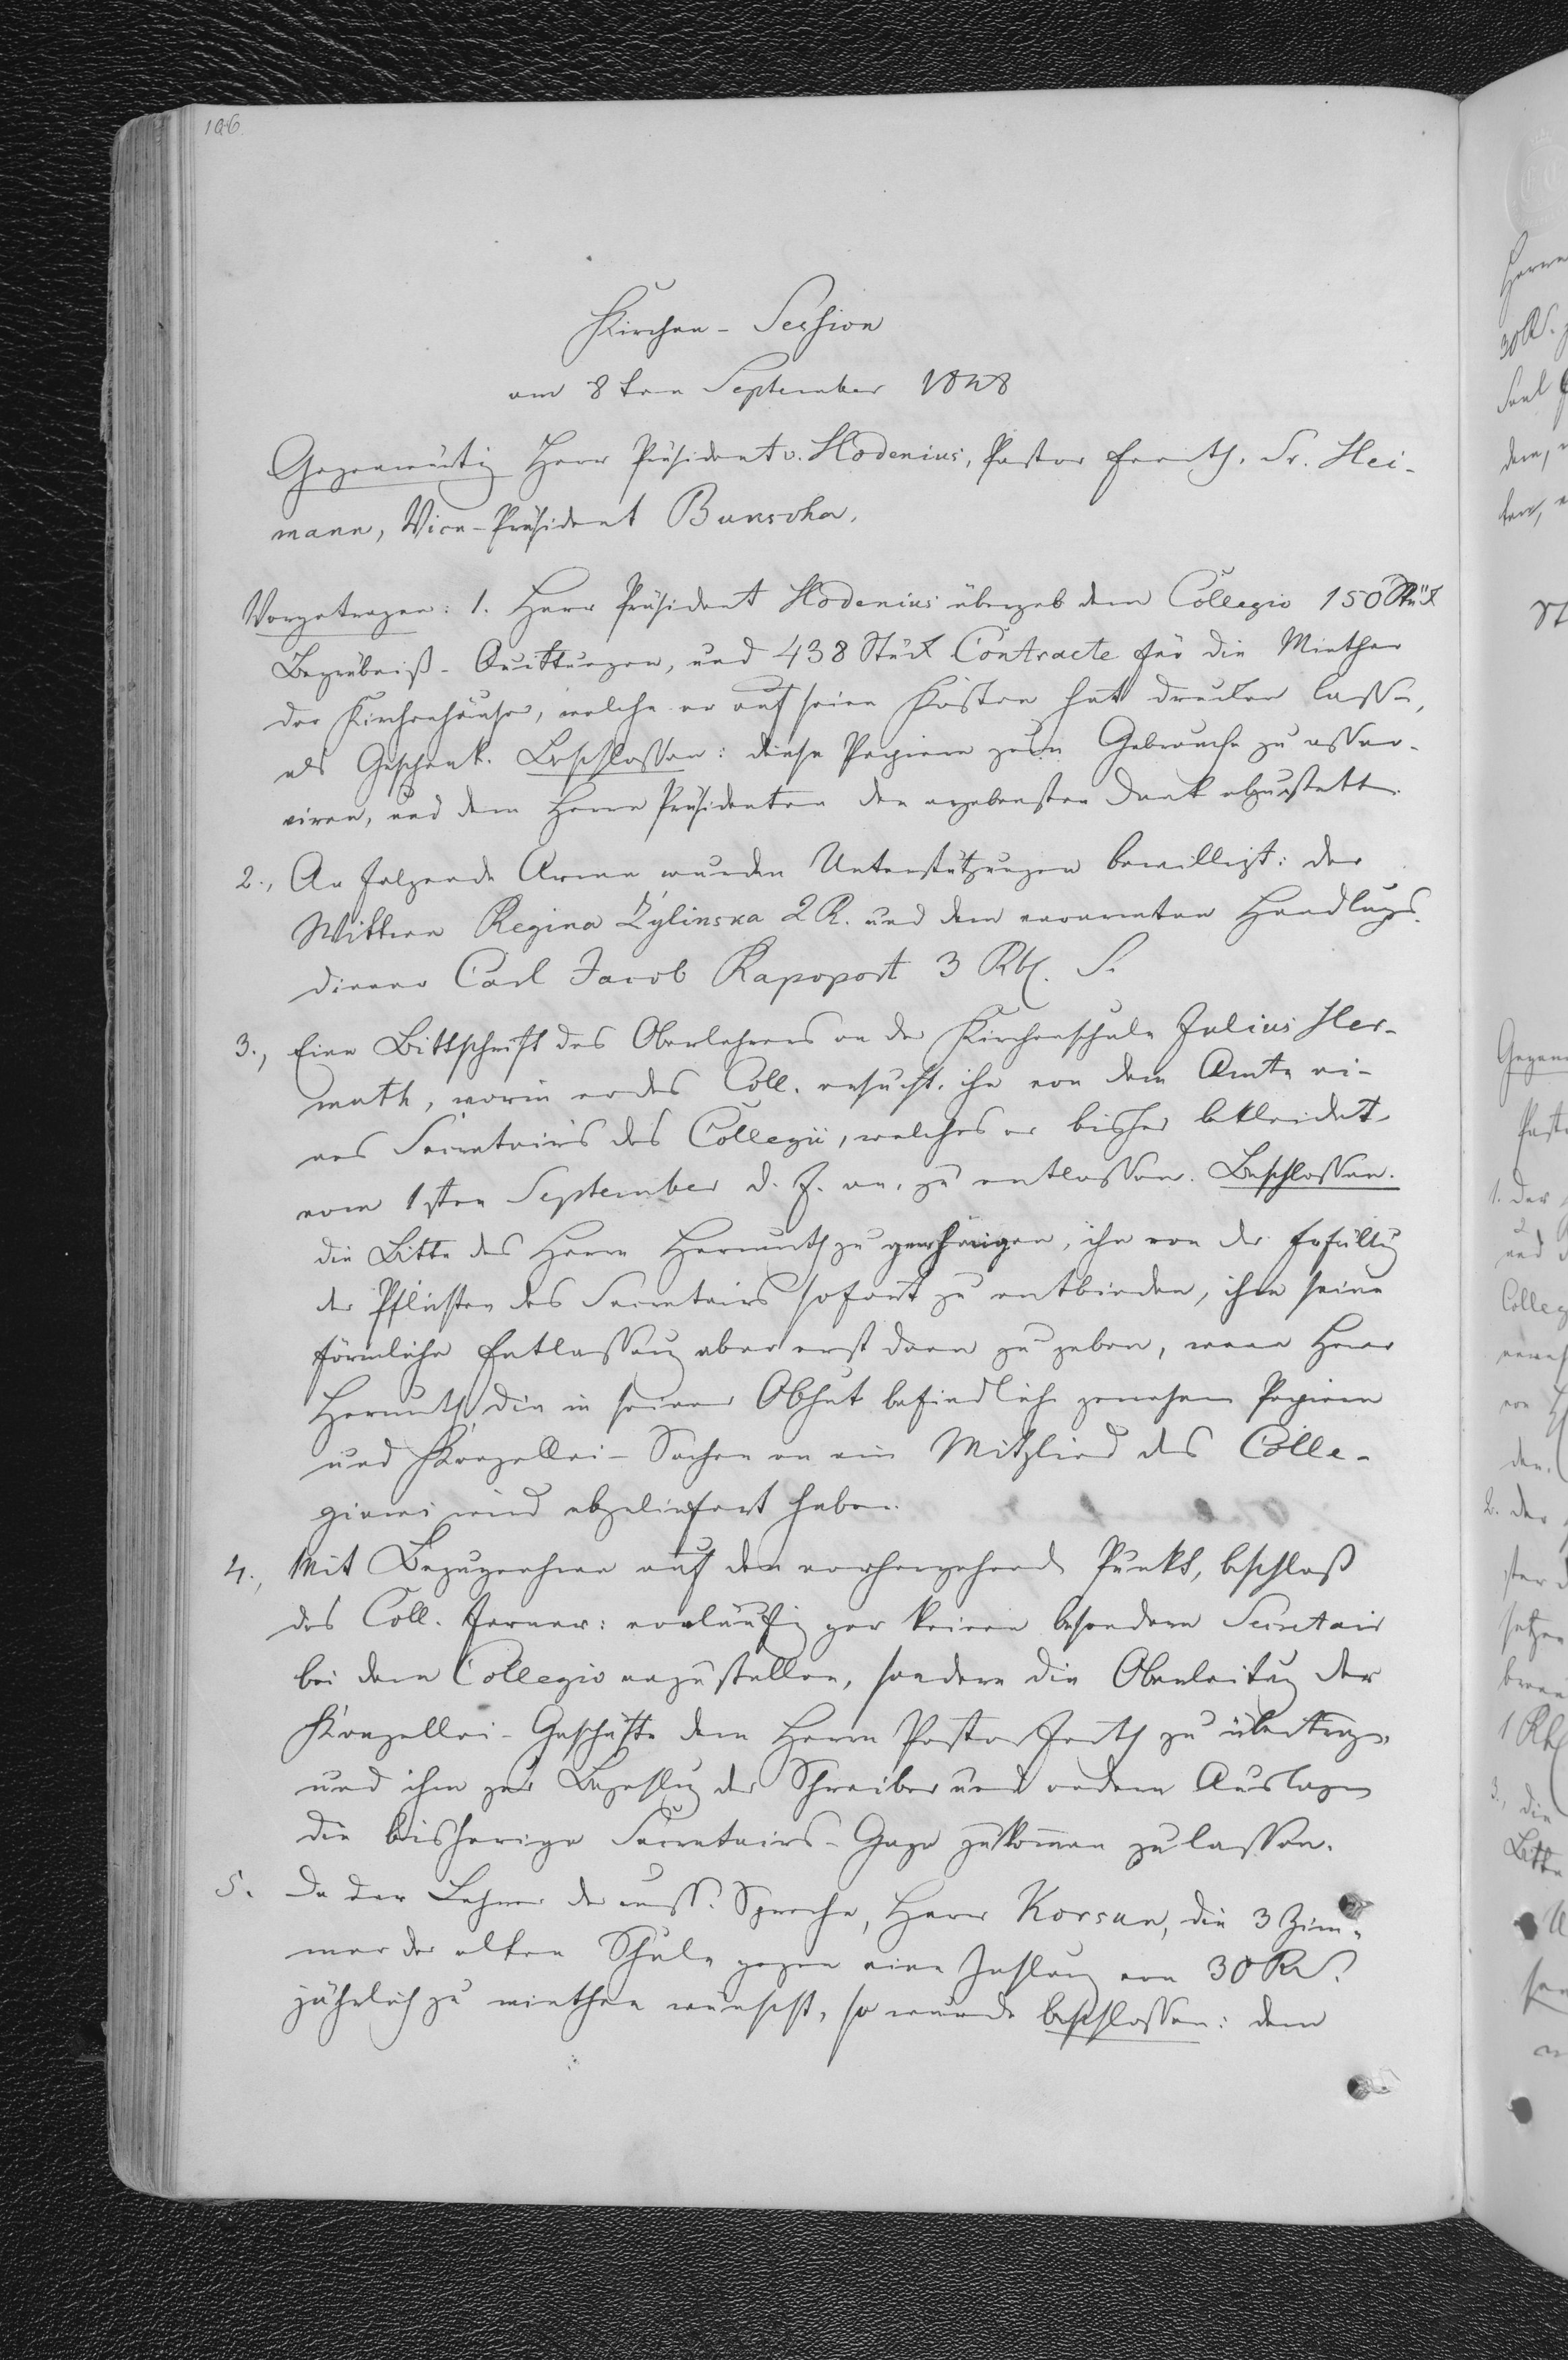 106.
Kirchen-Session
am 8ten September 1848
Gegenwärtig Herr Präsident v. Hodenius, Pastor Dr. Hei-
mann, Vice-Präsident Bunsoha.
Vorgetragen: 1. Herr Präsident Hodenius übergab dem Collegio 150 Stück
Begräbniß-Quittungen, und 438 Stück Contracte für die Miether
der Kirchenhäuser, welche er auf seine Kosten hat drucken lassen,
als Geschenk. Beschlossen: diese Papiere zum Gebrauche zu asser-
viren, und dem Herrn Präsidenten den ergebensten Dank abzustatten.
2., An folgende Arme wurden Unterstützungen bewilligt: der
Wittwe Regina Żylinska 2 R. und dem verarmten Handlungs-
diener Carl Jacob Rapoport 3 Rbl. S.
3., Eine Bittschrift des Oberlehrers an der Kirchenschule Julius Her-
muth, worin er das Coll. ersucht, ihn von dem Amte ei-
nes Secretairs des Collegii, welches er bisher bekleidet
vom 1sten September d. J. an, zu entlassen. Beschlossen.
die Bitte des Herrn Hermuth zu genehmigen, ihn von der Erfüllung
der Pflichten des Secretairs sofort zu entbinden, ihm seine
förmliche Entlassung aber erst dann zu geben, wenn Herr
Hermuth die in seiner Obhut befindlich gewesene Papiere
und Kanzellei-Sachen an ein Mitglied des Colle-
giums wird abgeliefert haben.
4., Mit Bezugnahme auf den vorhergehend Punkt, beschloß
das Coll. ferner: vorläufig gar keinen besondern Secretair
bei dem Collegio anzustellen, sondern die Oberleitung der
Kanzellei-Geschäfte dem Herrn Pastor zu übertragen,
und ihm zur Bezahlung der Schreiber und andern Auslagen
die bisherige Secretairs-Gage zukommen zu lassen.
5. Da der Lehrer der russ. Sprache, Herr Korsun, die 3 Zim-
mer der alten Schule gegen eine Zahlung von 30 R. S.
jährlich zu miethen wünscht, so wurde beschlossen: dem